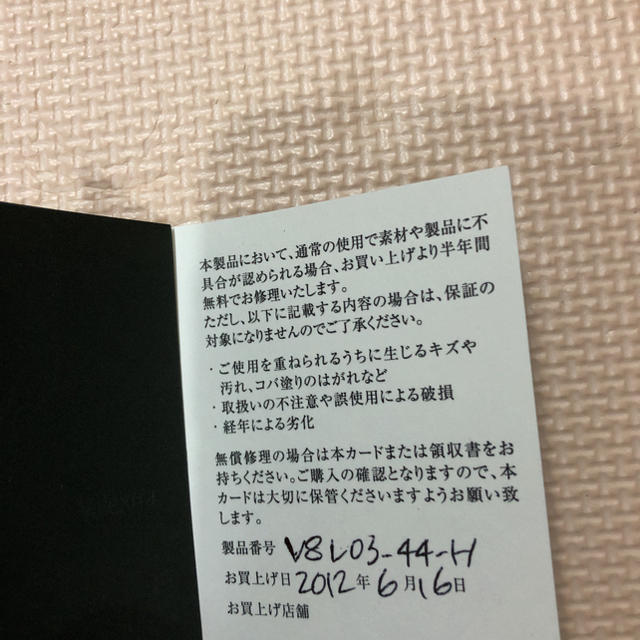 本製品において、通常の使用で素材や製品に不
具合が認められる場合、お買い上げより半年間
無料でお修理いたします。
ただし、以下に記載する内容の場合は、保証の
対象になりませんのでご了承ください。
・ご使用を重ねられるうちに生じるキズや
汚れ、コバ塗りのはがれなど
・取扱いの不注意や誤使用による破損
・経年による劣化
無償修理の場合は本カードまたは領収書をお
持ちください。ご購入の確認となりますので、本
カードは大切に保管くださいますようお願い致
します。
製品番号 V8L03-44-H
お買上げ日 2012年6月16日
お買上げ店舗